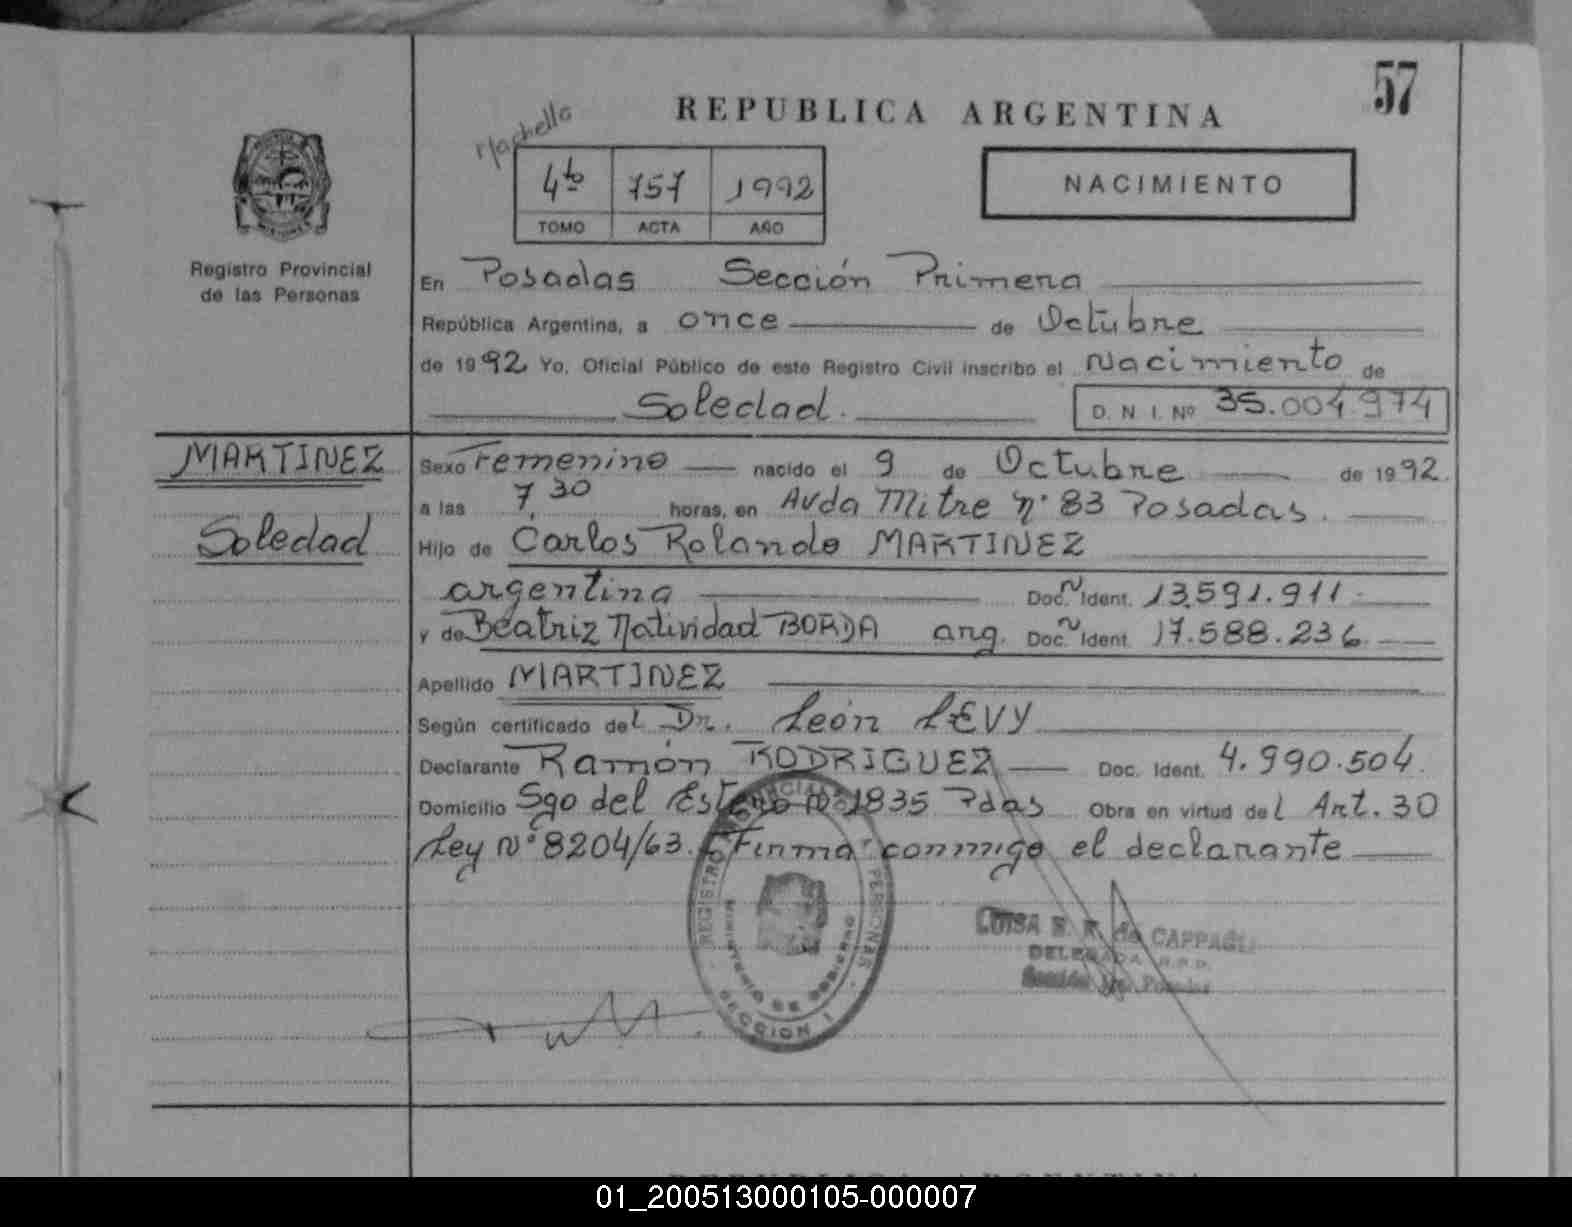 57
REPUBLICA ARGENTINA
4to 757 1992
TOMO ACTA AÑO
NACIMIENTO
Registro Provincial
de las Personas
En Posadas Sección Primera
República Argentina, a once de Octubre
de 1992 Yo, Oficial Público de este Registro Civil inscribo el Nacimiento de
Soledad. D. N. I. Nº 35.004.974
MARTINEZ
Soledad
Sexo Femenino nacido el 9 de Octubre de 1992.
a las 7,30 horas, en Avda Mitre nº 83 Posadas.
Hijo de Carlos Rolando MARTINEZ
argentina Doc. Ident. 13.591.911
y de Beatriz Natividad BORDA arg. Doc. Ident. 17.588.236
Apellido MARTINEZ
Según certificado del Dr. León LEVY
Declarante Ramón RODRIGUEZ Doc. Ident. 4.990.504.
Domicilio Sgo del Estero Nº 1835 Pdas Obra en virtud del Art. 30
Ley Nº 8204/63. Firma conmigo el declarante
REGISTRO PROVINCIAL PERSONAS
MINISTERIO DE GOBIERNO
SECCION 1
LUISA de CAPPAGLI
DELEGADA R.P.P.
Posadas
01_200513000105-000007